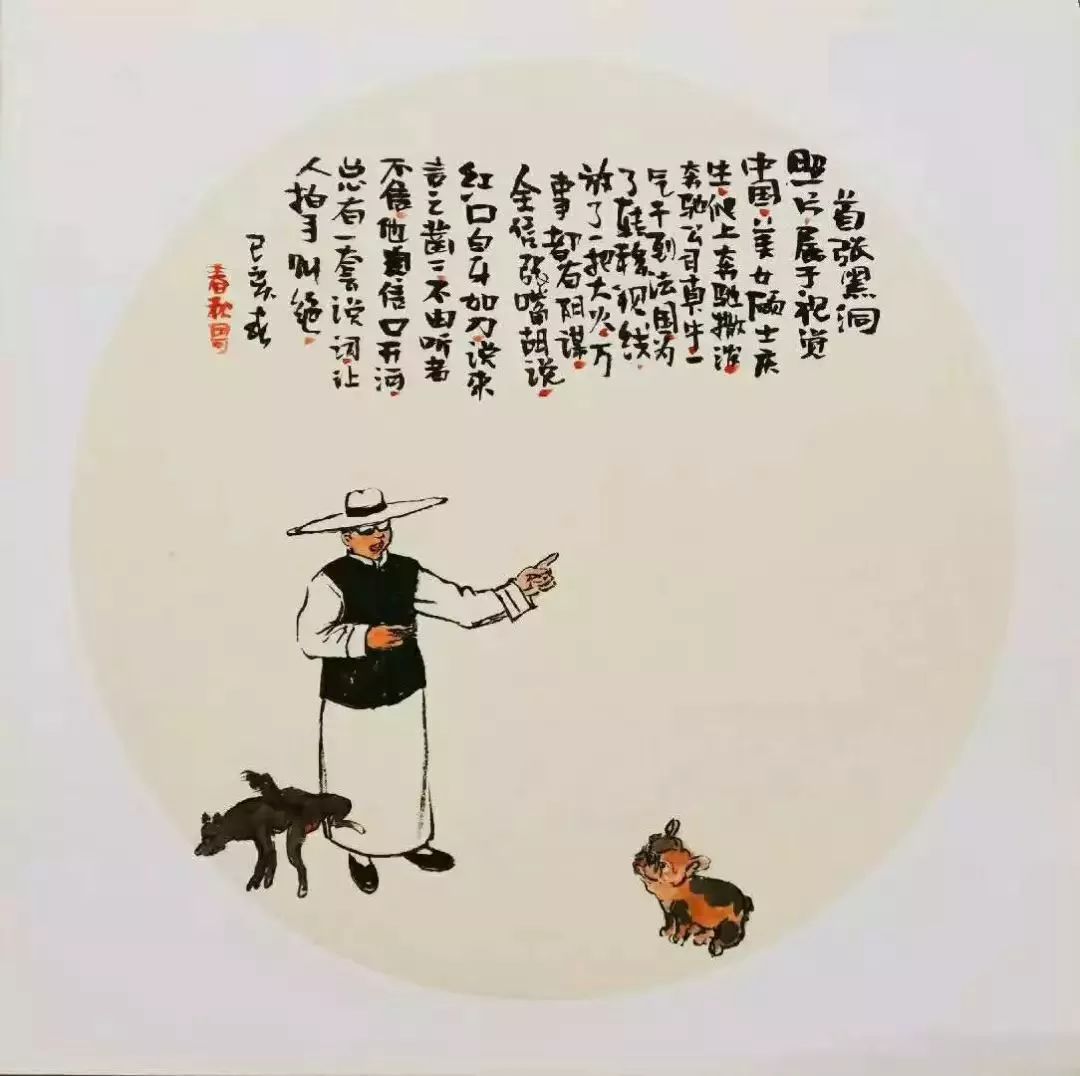 首张黑洞
照片属于视觉
中国美女硕士庆
生爬上奔驰撒泼
奔驰公司真牛一
气干到法国为
了转移视线
放了一把大火万
事都有阳谋
全信张嘴胡说
红口白牙如刀说来
言之凿二不由听者
不信他信口开河
总有一套说词让
人拍手叫绝
己亥春
春秋